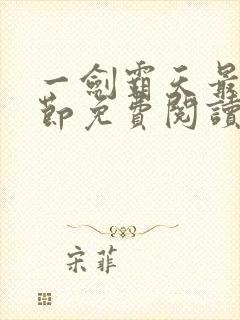 一劍霸天最
節免費閱讀
宋菲